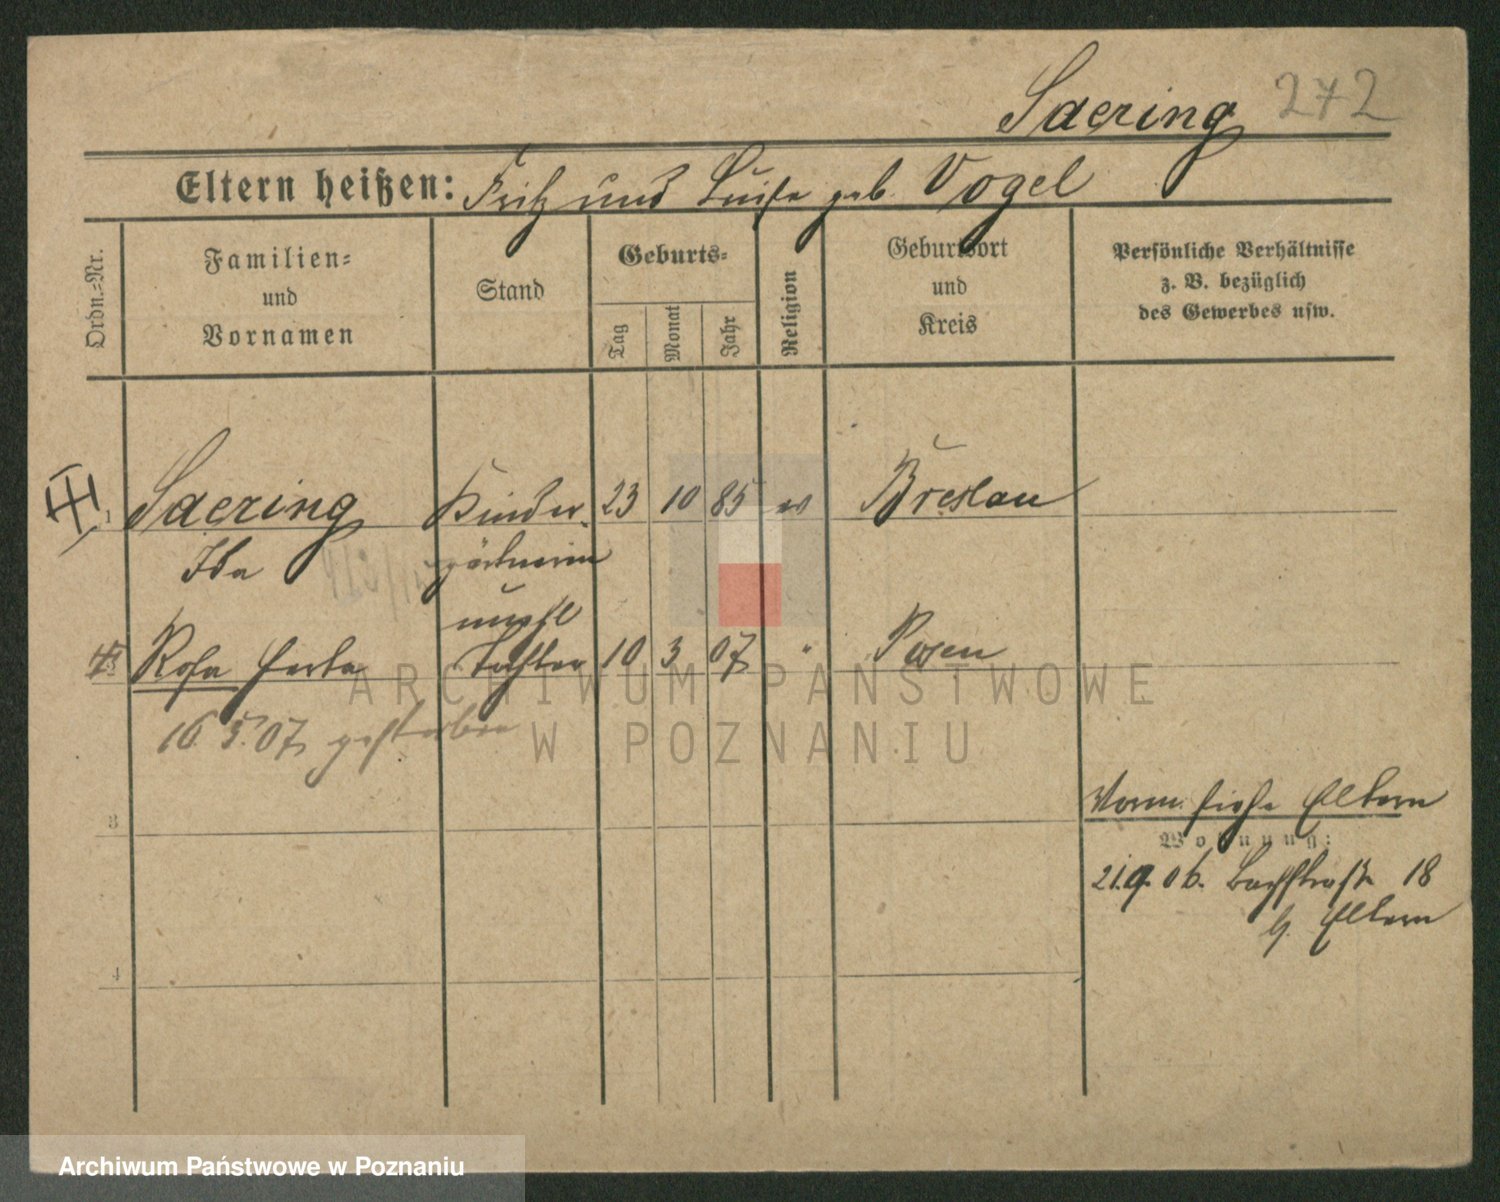 Saering 272
Eltern heißen: Fritz und Luise geb. Vogel
Ordn.-Nr.
Familien-
und
Vornamen
Stand
Geburts-
Tag
Monat
Jahr
Religion
Geburtsort
und
Kreis
Persönliche Verhältnisse
z. B. bezüglich
des Gewerbes usw.
1 Saering Kinder- 23 10 85 ev Breslau
Ida gärtnerin
unvhl
Rosa Herta Tochter 10 3 07 " Posen
16. 5. 07 gestorben
ARCHIWUM PAŃSTWOWE
W POZNANIU
3
Vorm. siehe Eltern
Wohnung:
21.9.06. Bachstraße 18
b. Eltern
4
Archiwum Państwowe w Poznaniu